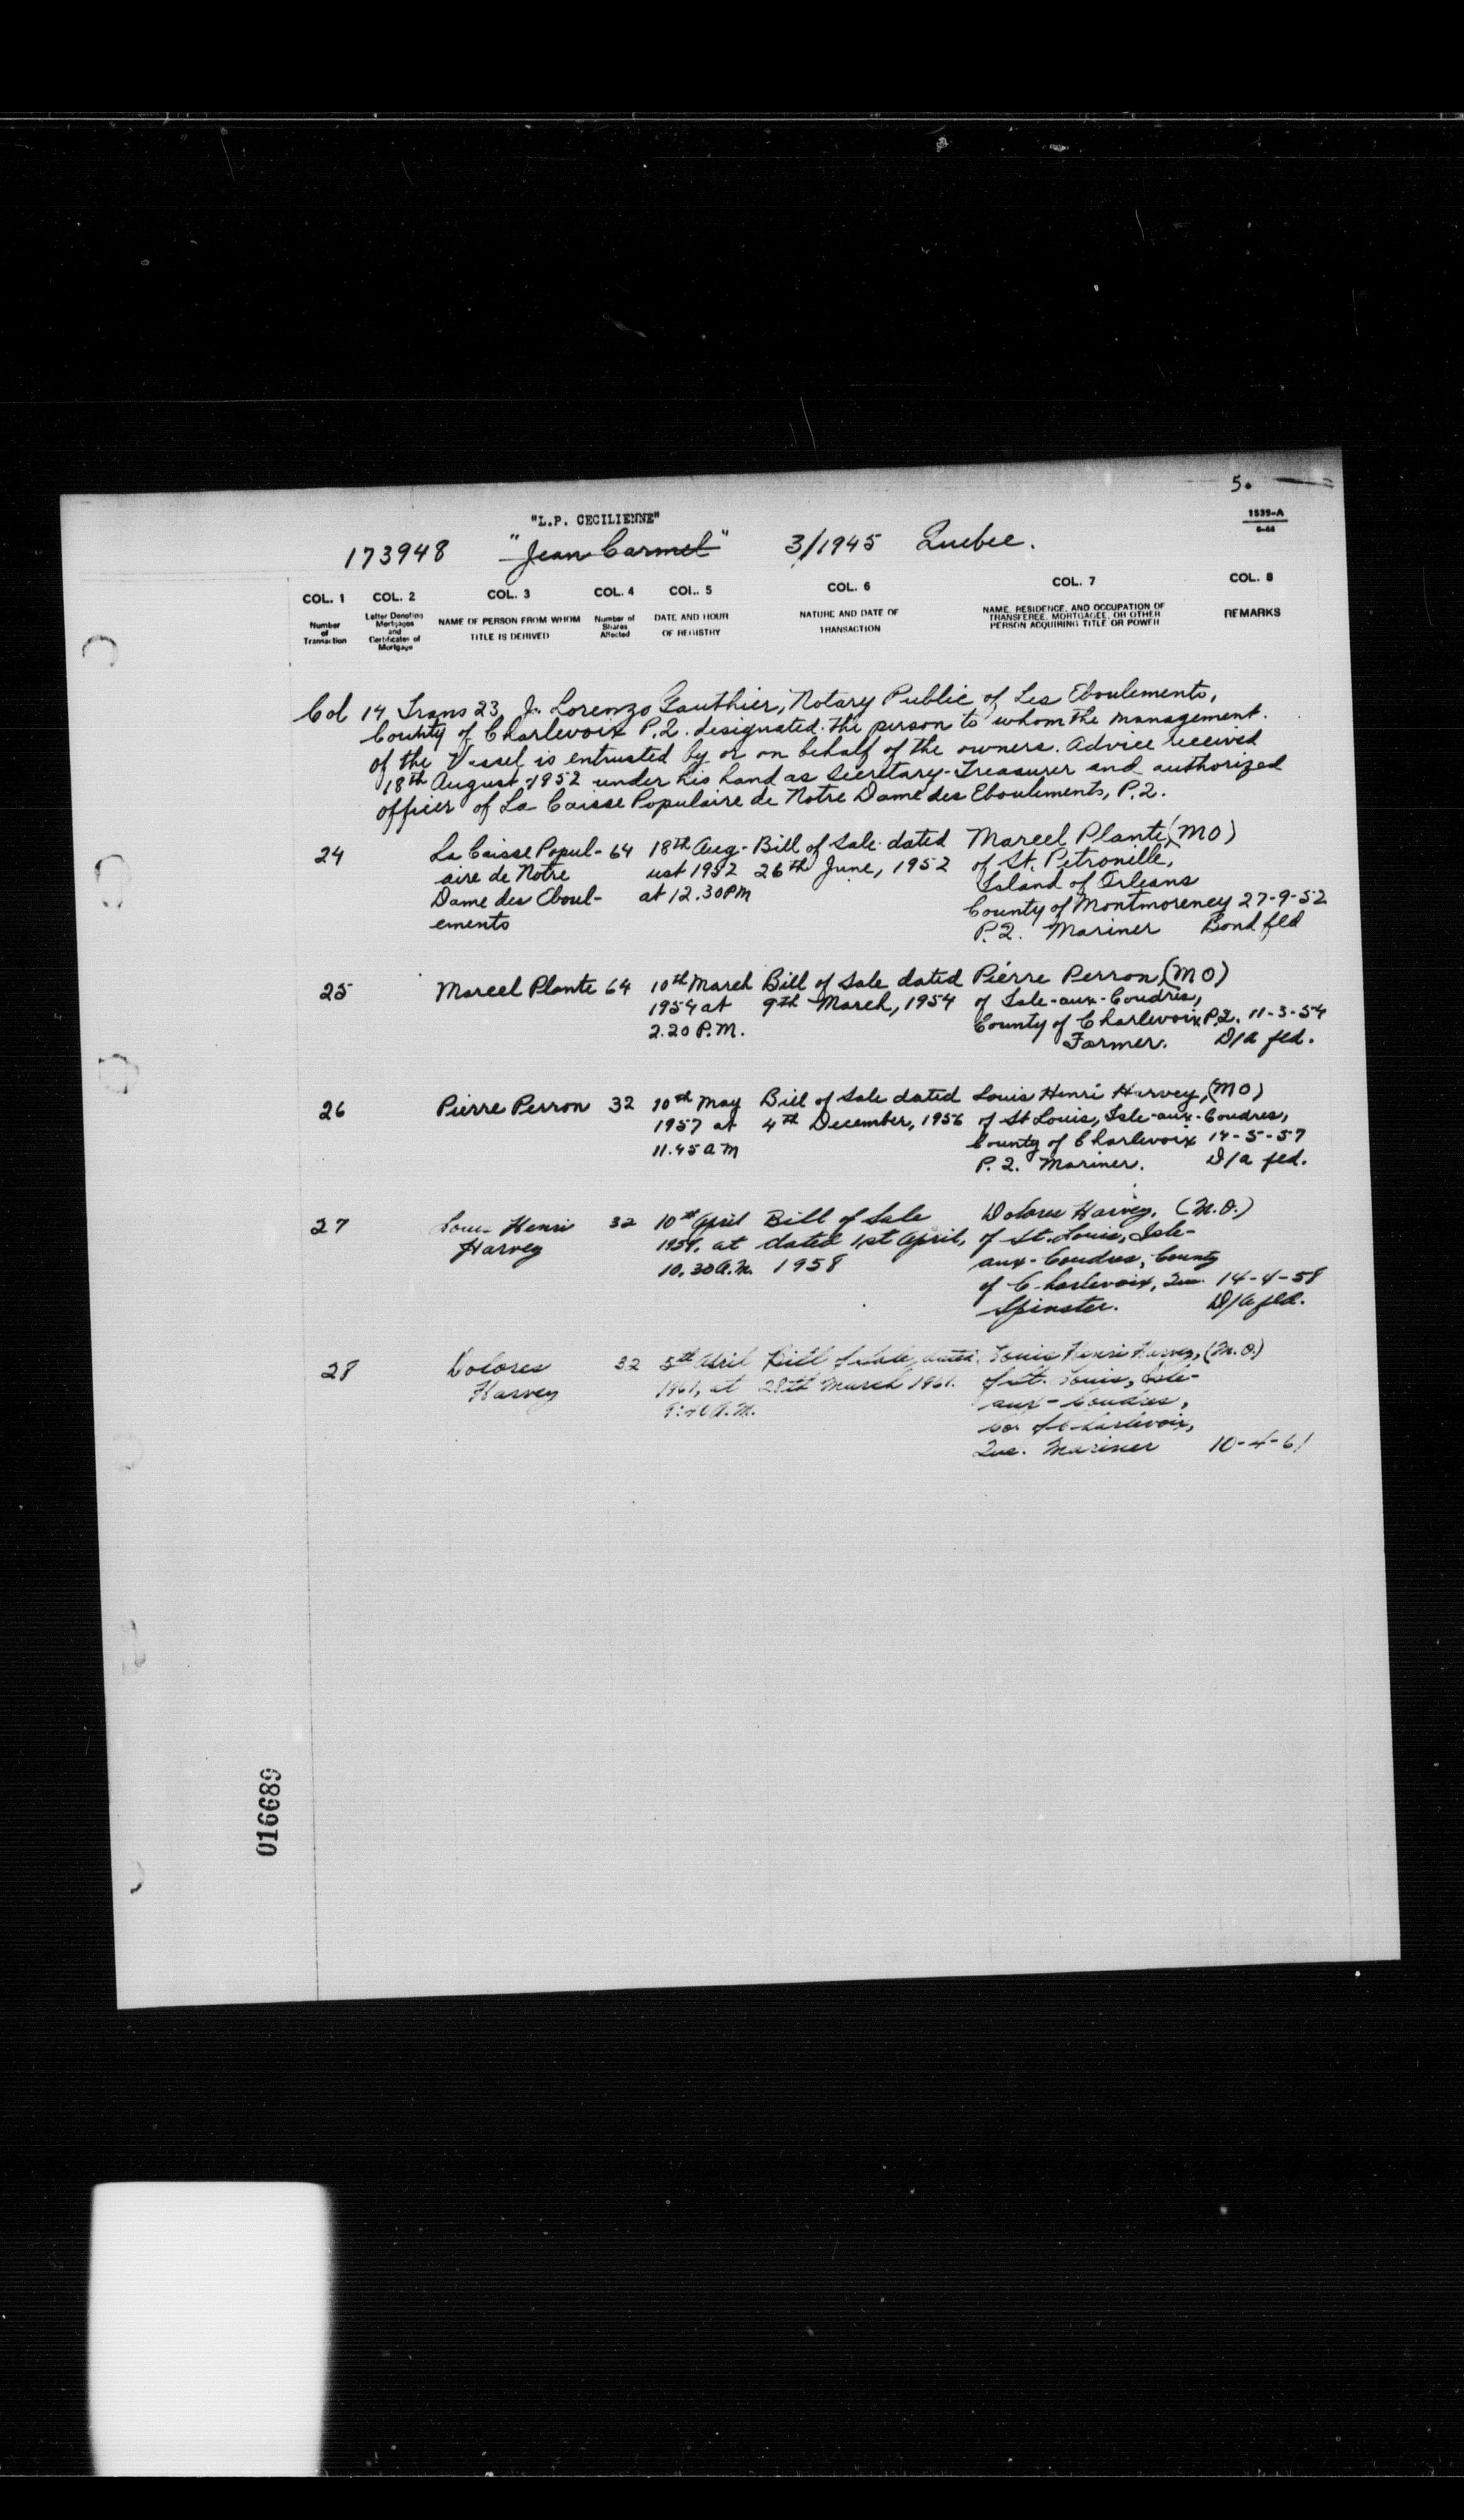 5.
1535-A
6-44
"L.P. CECILIENNE"
173948 "Jean Carmel" 3/1945 Quebec.
COL. 1 COL. 2 COL. 3 COL. 4 COL. 5 COL. 6 COL. 7 COL. 8
Number of Transaction
Letter Denoting Mortgages and Certificates of Mortgage
NAME OF PERSON FROM WHOM TITLE IS DERIVED
Number of Shares Affected
DATE AND HOUR OF REGISTRY
NATURE AND DATE OF TRANSACTION
NAME, RESIDENCE, AND OCCUPATION OF TRANSFEREE, MORTGAGEE, OR OTHER PERSON ACQUIRING TITLE OR POWER
REMARKS
Col 14 Trans 23 J. Lorenzo Gauthier, Notary Public of Les Eboulements,
County of Charlevoix P.Q. designated the person to whom the management
of the Vessel is entrusted by or on behalf of the owners. Advice received
18th August 1952 under his hand as Secretary-Treasurer and authorized
officer of La Caisse Populaire de Notre Dame des Eboulements, P.Q.
24 La Caisse Popul- 64 18th Aug- Bill of Sale dated Marcel Plante, (MO)
aire de Notre ust 1952 26th June, 1952 of St. Petronille,
Dame des Eboul- at 12.30 PM Island of Orleans
ements County of Montmorency 27-9-52
P.Q. Mariner Bond fld
25 Marcel Plante 64 10th March Bill of Sale dated Pierre Perron, (MO)
1954 at 9th March, 1954 of Isle-aux-Coudres,
2.20 P.M. County of Charlevoix P.Q. 11-3-54
Farmer. D/a fld.
26 Pierre Perron 32 10th May Bill of Sale dated Louis Henri Harvey, (MO)
1957 at 4th December, 1956 of St Louis, Isle-aux-Coudres,
11.45 am County of Charlevoix 14-5-57
P.Q. Mariner. D/a fld.
27 Louis Henri 32 10th April Bill of Sale Dolores Harvey, (M.O.)
Harvey at dated 1st April, of St. Louis, Isle-
10.30 A.M. 1958 aux-Coudres, County
of Charlevoix, Que. 14-4-58
Spinster. D/a fld.
28 Dolores 32 5th April Bill of Sale, dated Louis Henri Harvey, (M.O.)
Harvey 1961, at 28th March 1961. of St. Louis, Isle-
9:40 A.M. aux-Coudres,
Co. of Charlevoix,
Que. Mariner 10-4-61
016689